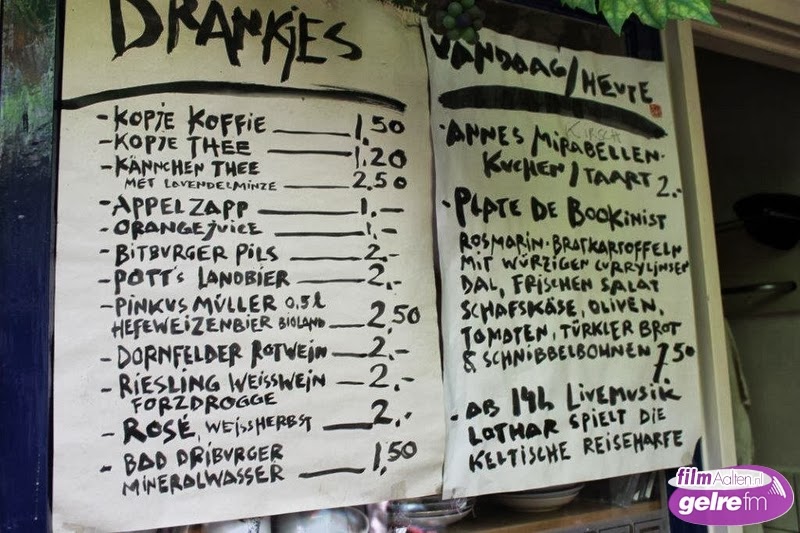 DRANKJES
- KOPJE KOFFIE 1,50
- KOPJE THEE 1,20
- KÄNNCHEN THEE
MET LAVENDELMINZE 2,50
- APPELZAPP 1,—
- ORANGEJUICE 1,—
- BITBURGER PILS 2,-
- POTT'S LANDBIER 2,-
- PINKUS MÜLLER 0,5L
HEFEWEIZENBIER BIOLAND 2,50
- DORNFELDER ROTWEIN 2,-
- RIESLING WEISSWEIN 2,-
FORZDROGGE
- ROSÉ, WEISSHERBST 2,-
- BAD DRIBURGER
MINERALWASSER 1,50
VANDAAG/HEUTE
KIRSCH
- ANNES MIRABELLEN-
KUCHEN/TAART 2.-
- PLATE DE BOOKINIST
ROSMARIN-BRATKARTOFFELN
MIT WÜRZIGEN CURRYLINSEN
DAL, FRISCHEN SALAT
SCHAFSKÄSE, OLIVEN,
TOMATEN, TÜRKLER BROT
& SCHNIBBELBOHNEN 7,50
- AB 14h LIVEMUSIK
LOTHAR SPIELT DIE
KELTISCHE REISEHARFE
filmAalten.nl
gelre fm